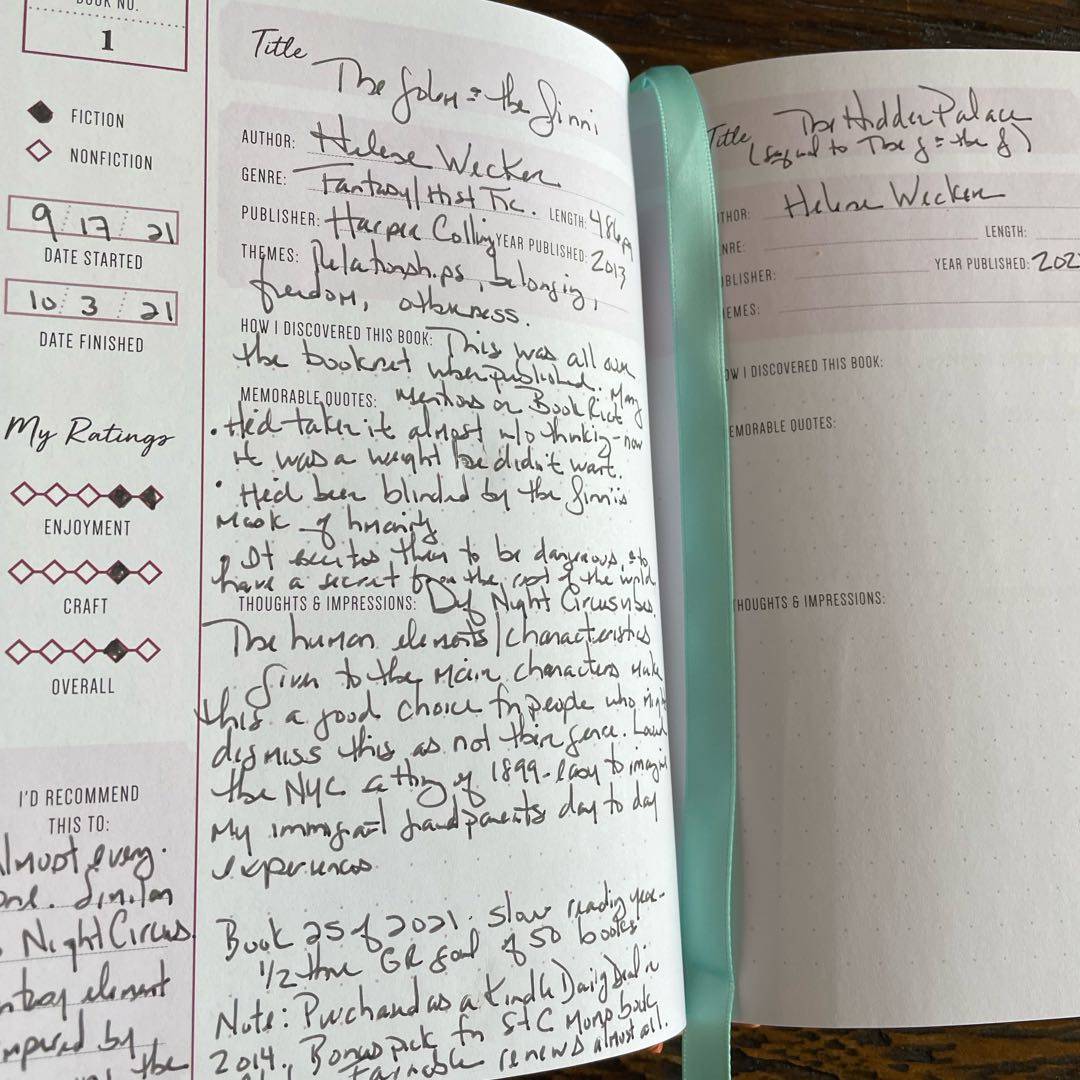 BOOK NO.
1
FICTION
NONFICTION
9 17 21
DATE STARTED
10 3 21
DATE FINISHED
My Ratings
ENJOYMENT
CRAFT
OVERALL
I'D RECOMMEND
THIS TO:
Almost every
one. Similar
Night Circus
element
by
the
Title The Golem & the Jinni
AUTHOR: Helene Wecker
GENRE: Fantasy/Hist Fic. LENGTH: 486pg
PUBLISHER: Harper Collins YEAR PUBLISHED: 2013
THEMES: Relationships, belonging,
freedom, otherness.
HOW I DISCOVERED THIS BOOK: This was all over
the booknet when published. Many
MEMORABLE QUOTES: mentions on Book Riot
• He'd taken it almost w/o thinking - now
it was a weight he didn't want.
• He'd been blinded by the Jinni's
mask of humanity
• It excites them to be dangerous, to
have a secret from the rest of the world
THOUGHTS & IMPRESSIONS: Def Night Circus vibes
The human elements/characteristics
given to the main characters make
this a good choice for people who might
dismiss this as not their genre. Loved
the NYC setting of 1899 - easy to imagine
my immigrant grandparents day to day
experiences
Book 25 of 2021. slow reading year -
1/2 the GR goal of 50 books
Note: Purchased as a Kindle Daily Deal in
2014. Bonus pick for book
renews almost all.
Title The Hidden Palace
(sequel to The G & the J)
THOR: Helene Wecker
NRE: LENGTH:
BLISHER: YEAR PUBLISHED: 202
EMES:
OW I DISCOVERED THIS BOOK:
EMORABLE QUOTES:
HOUGHTS & IMPRESSIONS: